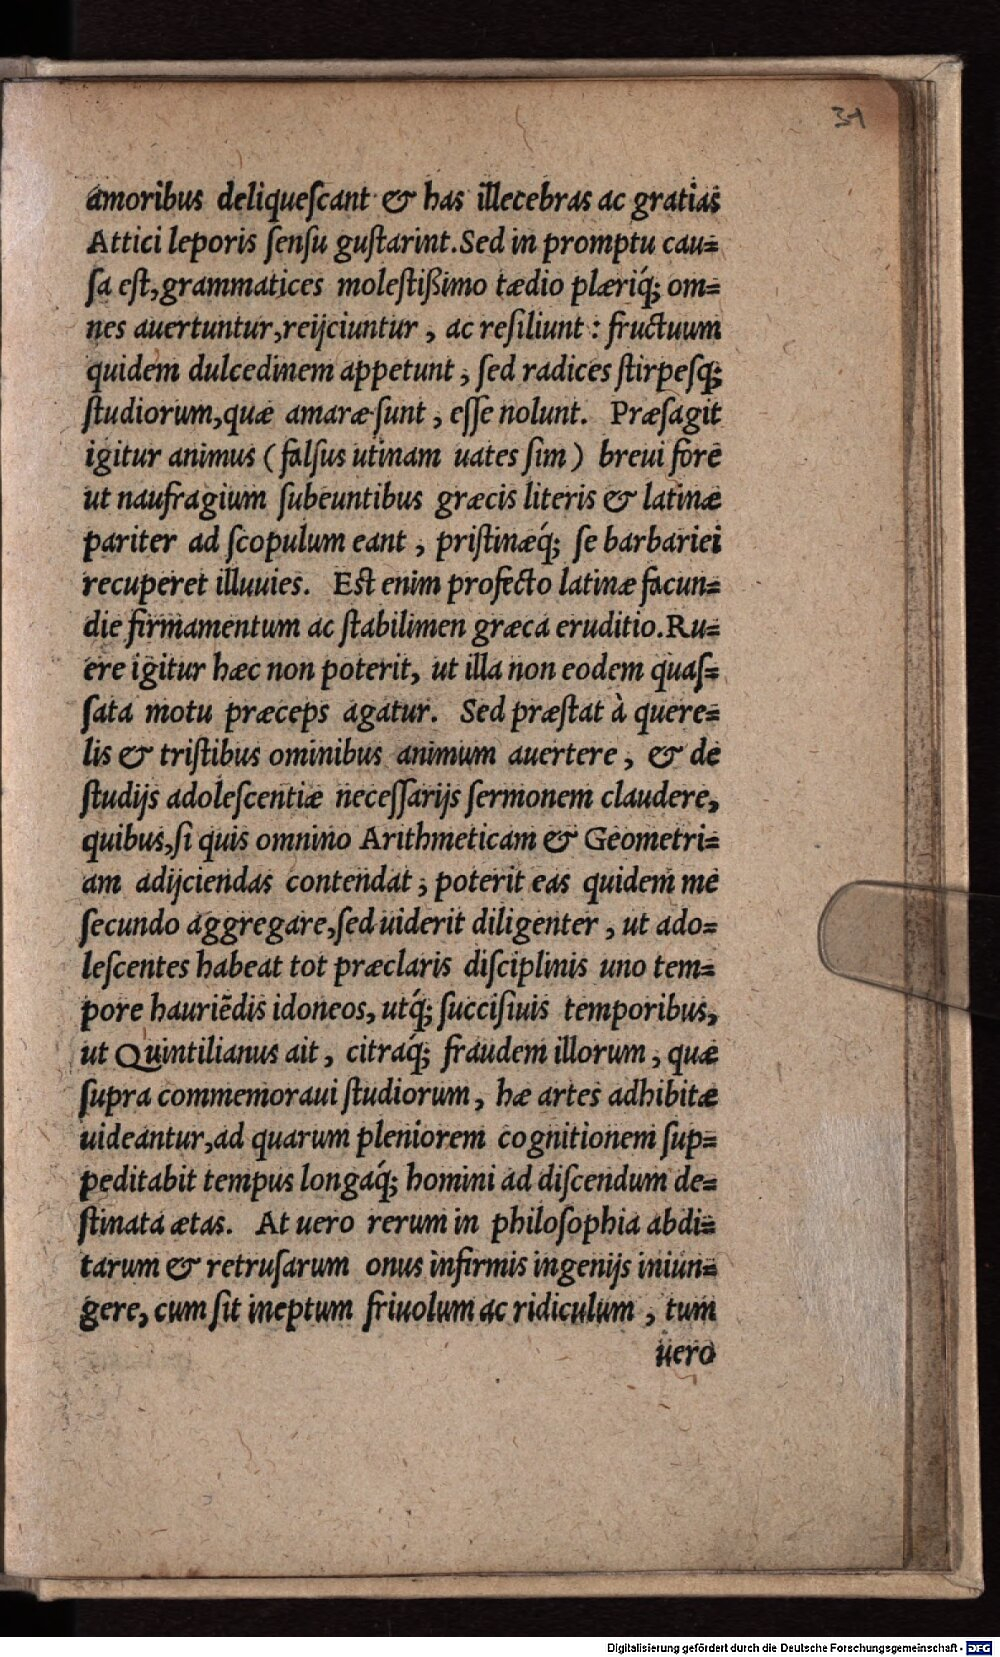 31
amoribus deliqueſcant & has illecebras ac gratias
Attici leporis ſenſu guſtarint. Sed in promptu cau=
ſa eſt, grammatices moleſtißimo tædio plæriq́; om=
nes auertuntur, reijciuntur, ac reſiliunt: fructuum
quidem dulcedinem appetunt, ſed radices ſtirpeſq;
ſtudiorum, quæ amaræ ſunt, eſſe nolunt. Præſagit
igitur animus (falſus utinam uates ſim) breui fore
ut naufragium ſubeuntibus græcis literis & latinæ
pariter ad ſcopulum eant, priſtinæq́; ſe barbariei
recuperet illuuies. Eſt enim profecto latinæ facun=
die firmamentum ac ſtabilimen græca eruditio. Ru=
ere igitur hæc non poterit, ut illa non eodem quaſ=
ſata motu præceps agatur. Sed præſtat à quere=
lis & triſtibus ominibus animum auertere, & de
ſtudijs adoleſcentiæ neceſſarijs ſermonem claudere,
quibus, ſi quis omnino Arithmeticam & Geometri=
am adijciendas contendat, poterit eas quidem me
ſecundo aggregare, ſed uiderit diligenter, ut ado=
leſcentes habeat tot præclaris diſciplinis uno tem=
pore hauriẽdis idoneos, utq́; ſucciſiuis temporibus,
ut Quintilianus ait, citraq́; fraudem illorum, quæ
ſupra commemoraui ſtudiorum, hæ artes adhibitæ
uideantur, ad quarum pleniorem cognitionem ſup=
peditabit tempus longaq́; homini ad diſcendum de=
ſtinata ætas. At uero rerum in philoſophia abdi=
tarum & retruſarum onus infirmis ingenijs iniun=
gere, cum ſit ineptum friuolum ac ridiculum, tum
uero
Digitalisierung gefördert durch die Deutsche Forschungsgemeinschaft - DFG